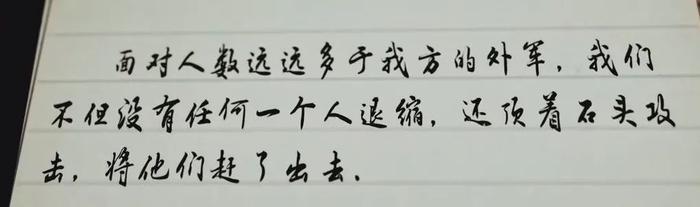 面对人数远远多于我方的外军，我们
不但没有任何一个人退缩，还顶着石头攻
击，将他们赶了出去．